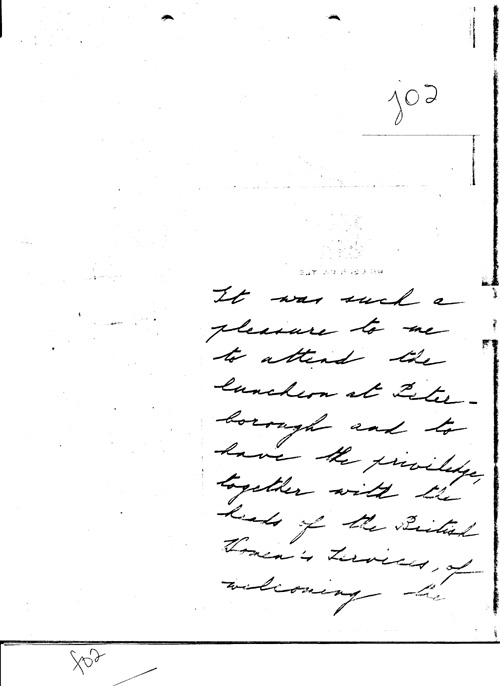 j02
It was such a
pleasure to me
to attend the
luncheon at Peter-
borough and to
have the priviledge,
together with the
heads of the British
Women's Services, of
welcoming the
j02